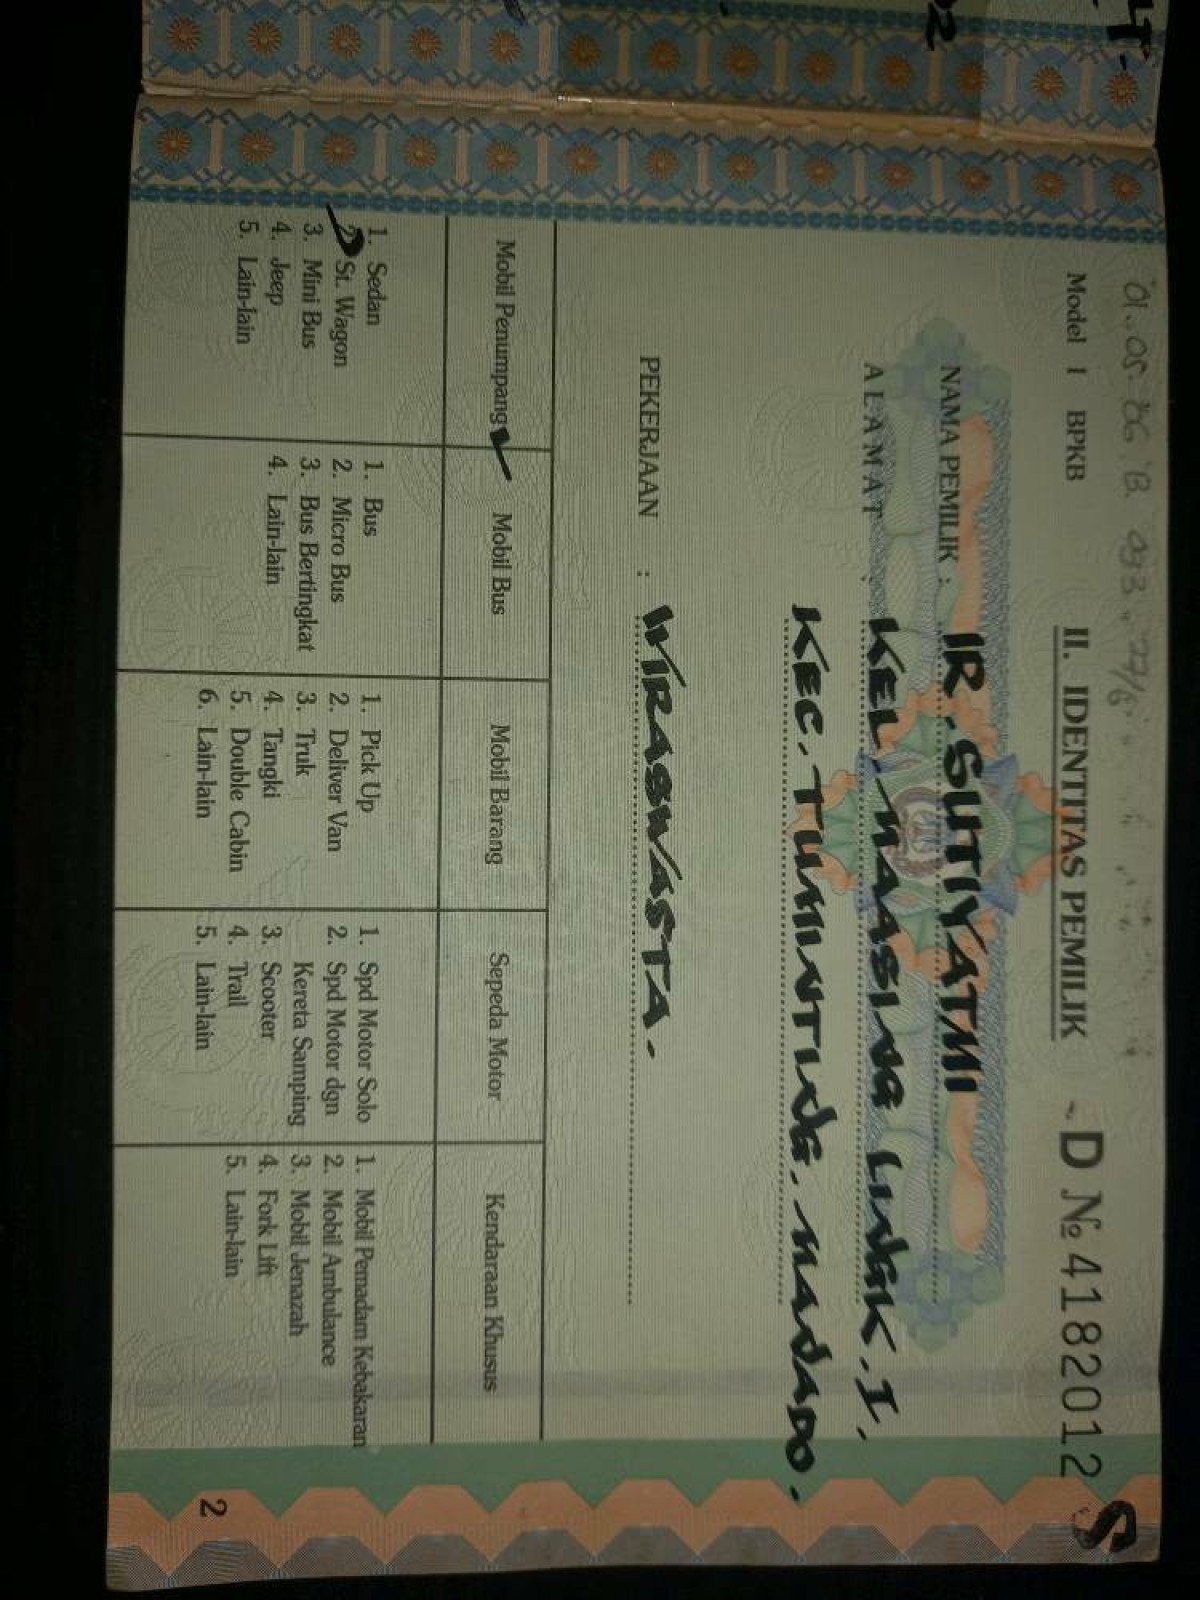 01.05.06.B.093.77/6
Model I BPKB
II. IDENTITAS PEMILIK
D № 4182012 S
NAMA PEMILIK : IR. SUTIYATMI
ALAMAT : KEL. MAASING LINGK. I.
KEC. TUMINTING. MANADO.
PEKERJAAN : WIRASWASTA.
Mobil Penumpang Mobil Bus Mobil Barang Sepeda Motor Kendaraan Khusus
1. Sedan
2. St. Wagon
3. Mini Bus
4. Jeep
5. Lain-lain
1. Bus
2. Micro Bus
3. Bus Bertingkat
4. Lain-lain
1. Pick Up
2. Deliver Van
3. Truk
4. Tangki
5. Double Cabin
6. Lain-lain
1. Spd Motor Solo
2. Spd Motor dgn
Kereta Samping
3. Scooter
4. Trail
5. Lain-lain
1. Mobil Pemadam Kebakaran
2. Mobil Ambulance
3. Mobil Jenazah
4. Fork Lift
5. Lain-lain
2